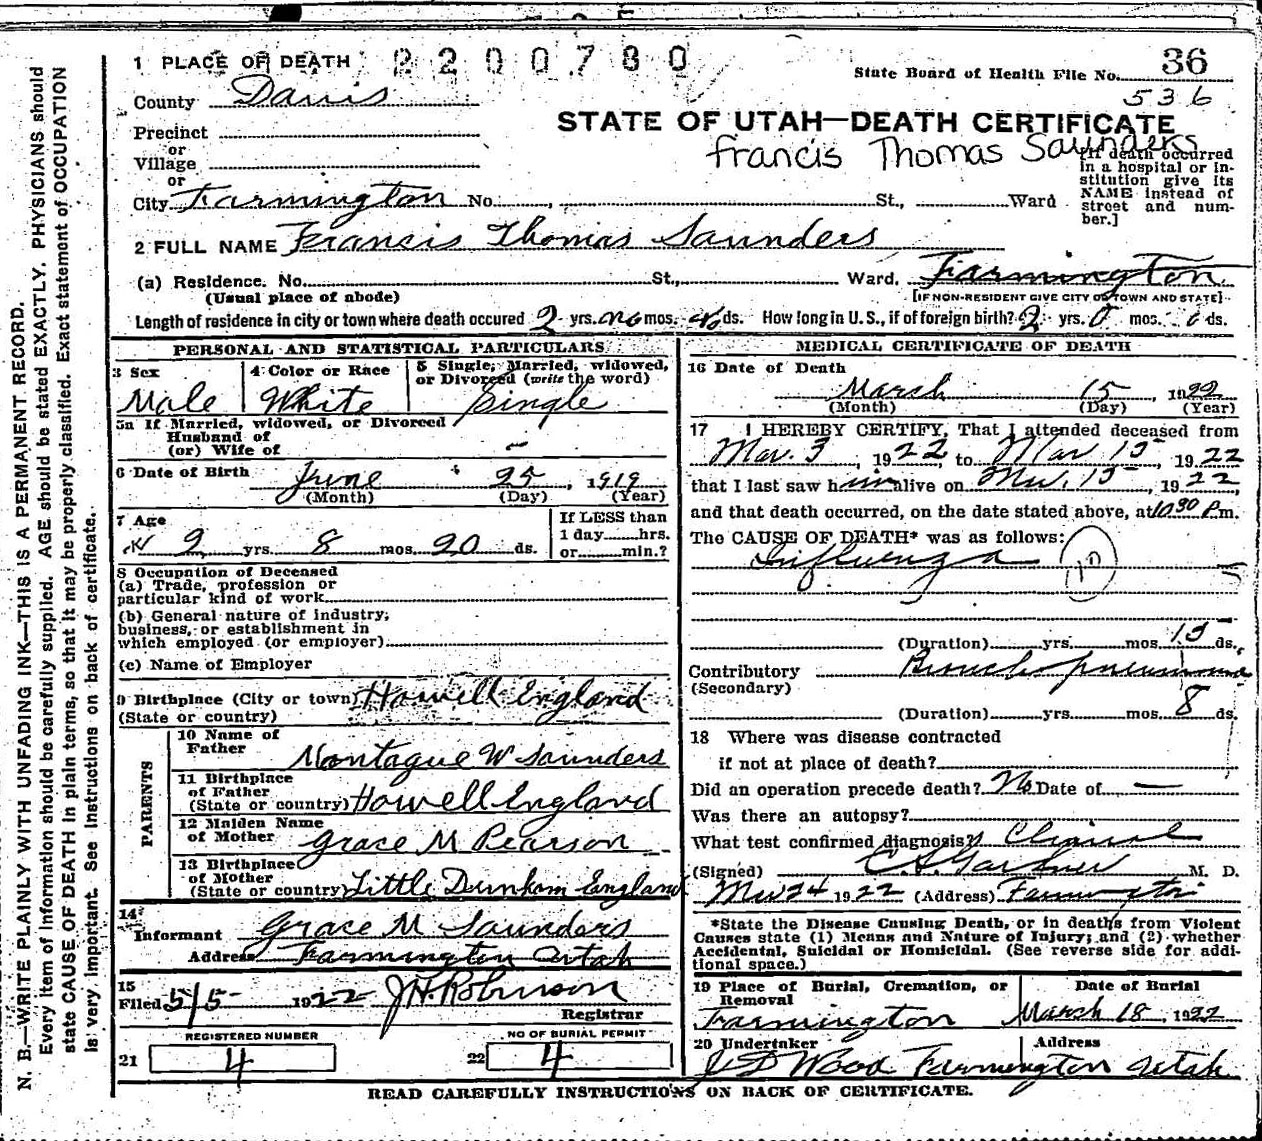 1 PLACE OF DEATH 2200780
State Board of Health File No. 36
County Davis
536
STATE OF UTAH—DEATH CERTIFICATE
Precinct
or
Village
or
Francis Thomas Saunders
[If death occurred in a hospital or in-
stitution give its
NAME instead of
street and num-
ber.]
City Farmington No. , St., Ward
2 FULL NAME Francis Thomas Saunders
(a) Residence. No. St., Ward. Farmington
(Usual place of abode) [IF NON-RESIDENT GIVE CITY OR TOWN AND STATE]
Length of residence in city or town where death occured 2 yrs. mos. ds. How long in U.S., if of foreign birth? 2 yrs. 0 mos. 0 ds.
PERSONAL AND STATISTICAL PARTICULARS
3 Sex
Male
4 Color or Race
White
5 Single, Married, widowed,
or Divorced (write the word)
Single
5a If Married, widowed, or Divorced
Husband of
(or) Wife of –
6 Date of Birth June 25, 1919
(Month) (Day) (Year)
7 Age
2 yrs. 8 mos. 20 ds.
If LESS than
1 day hrs.
or min.?
8 Occupation of Deceased
(a) Trade, profession or
particular kind of work
(b) General nature of industry,
business, or establishment in
which employed (or employer)
(c) Name of Employer
9 Birthplace (City or town) Howell England
(State or country)
PARENTS
10 Name of
Father Montague W Saunders
11 Birthplace
of Father
(State or country) Howell England
12 Maiden Name
of Mother Grace M Pearson
13 Birthplace
of Mother
(State or country) Little Dunham England
14
Informant Grace M Saunders
Address Farmington Utah
15
Filed 5/5 1922 J.H. Robinson
Registrar
REGISTERED NUMBER
21 4
NO OF BURIAL PERMIT
22 4
MEDICAL CERTIFICATE OF DEATH
16 Date of Death
March 15, 1922
(Month) (Day) (Year)
17 I HEREBY CERTIFY, That I attended deceased from
Mar. 3, 1922, to Mar 15 1922
that I last saw him alive on Mar. 15, 1922,
and that death occurred, on the date stated above, at 10 30 P.m.
The CAUSE OF DEATH* was as follows:
Influenza
(Duration) yrs. mos. 15 ds.
Contributory Broncho pneumonia
(Secondary)
(Duration) yrs. mos. 8 ds.
18 Where was disease contracted
if not at place of death?
Did an operation precede death? No Date of —
Was there an autopsy?
What test confirmed diagnosis? Clinical
(Signed) C. A. Gardner M. D.
Mar 24 1922 (Address) Farmington
*State the Disease Causing Death, or in deaths from Violent
Causes state (1) Means and Nature of Injury; and (2) whether
Accidental, Suicidal or Homicidal. (See reverse side for addi-
tional space.)
19 Place of Burial, Cremation, or
Removal
Farmington
Date of Burial
March 18, 1922
20 Undertaker Address
J D Wood Farmington Utah
READ CAREFULLY INSTRUCTIONS ON BACK OF CERTIFICATE.
N. B.—WRITE PLAINLY WITH UNFADING INK—THIS IS A PERMANENT RECORD.
Every item of information should be carefully supplied. AGE should be stated EXACTLY. PHYSICIANS should
state CAUSE OF DEATH in plain terms, so that it may be properly classified. Exact statement of OCCUPATION
is very important. See Instructions on back of certificate.